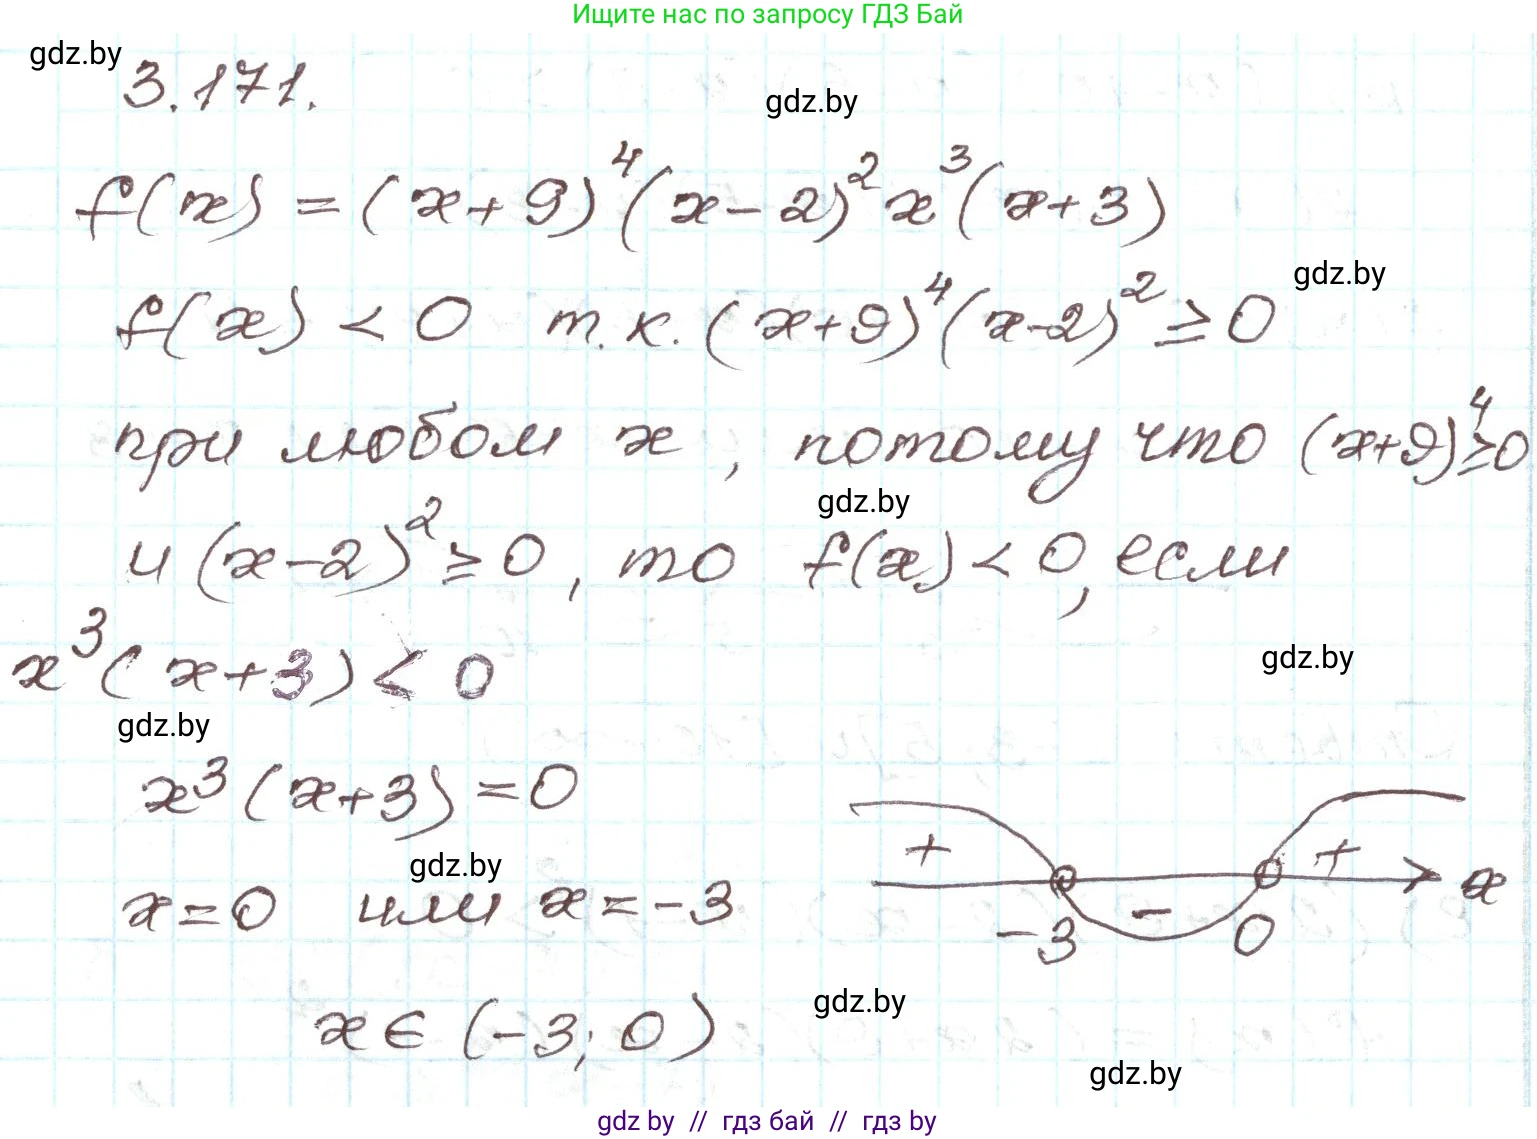 Ищите нас по запросу ГДЗ Бай
gdz.by
3.171.
gdz.by
f(x) = (x+9)⁴(x-2)²x³(x+3)
gdz.by
f(x) < 0 т.к. (x+9)⁴(x-2)² ≥ 0
при любом x, потому что (x+9)⁴≥0
gdz.by
и (x-2)² ≥ 0, то f(x) < 0, если
x³(x+3) < 0
gdz.by
gdz.by
x³(x+3) = 0
+ - + x
-3 0
gdz.by
x=0 или x=-3
gdz.by
x ∈ (-3; 0)
gdz.by
gdz by // гдз бай // гдз by